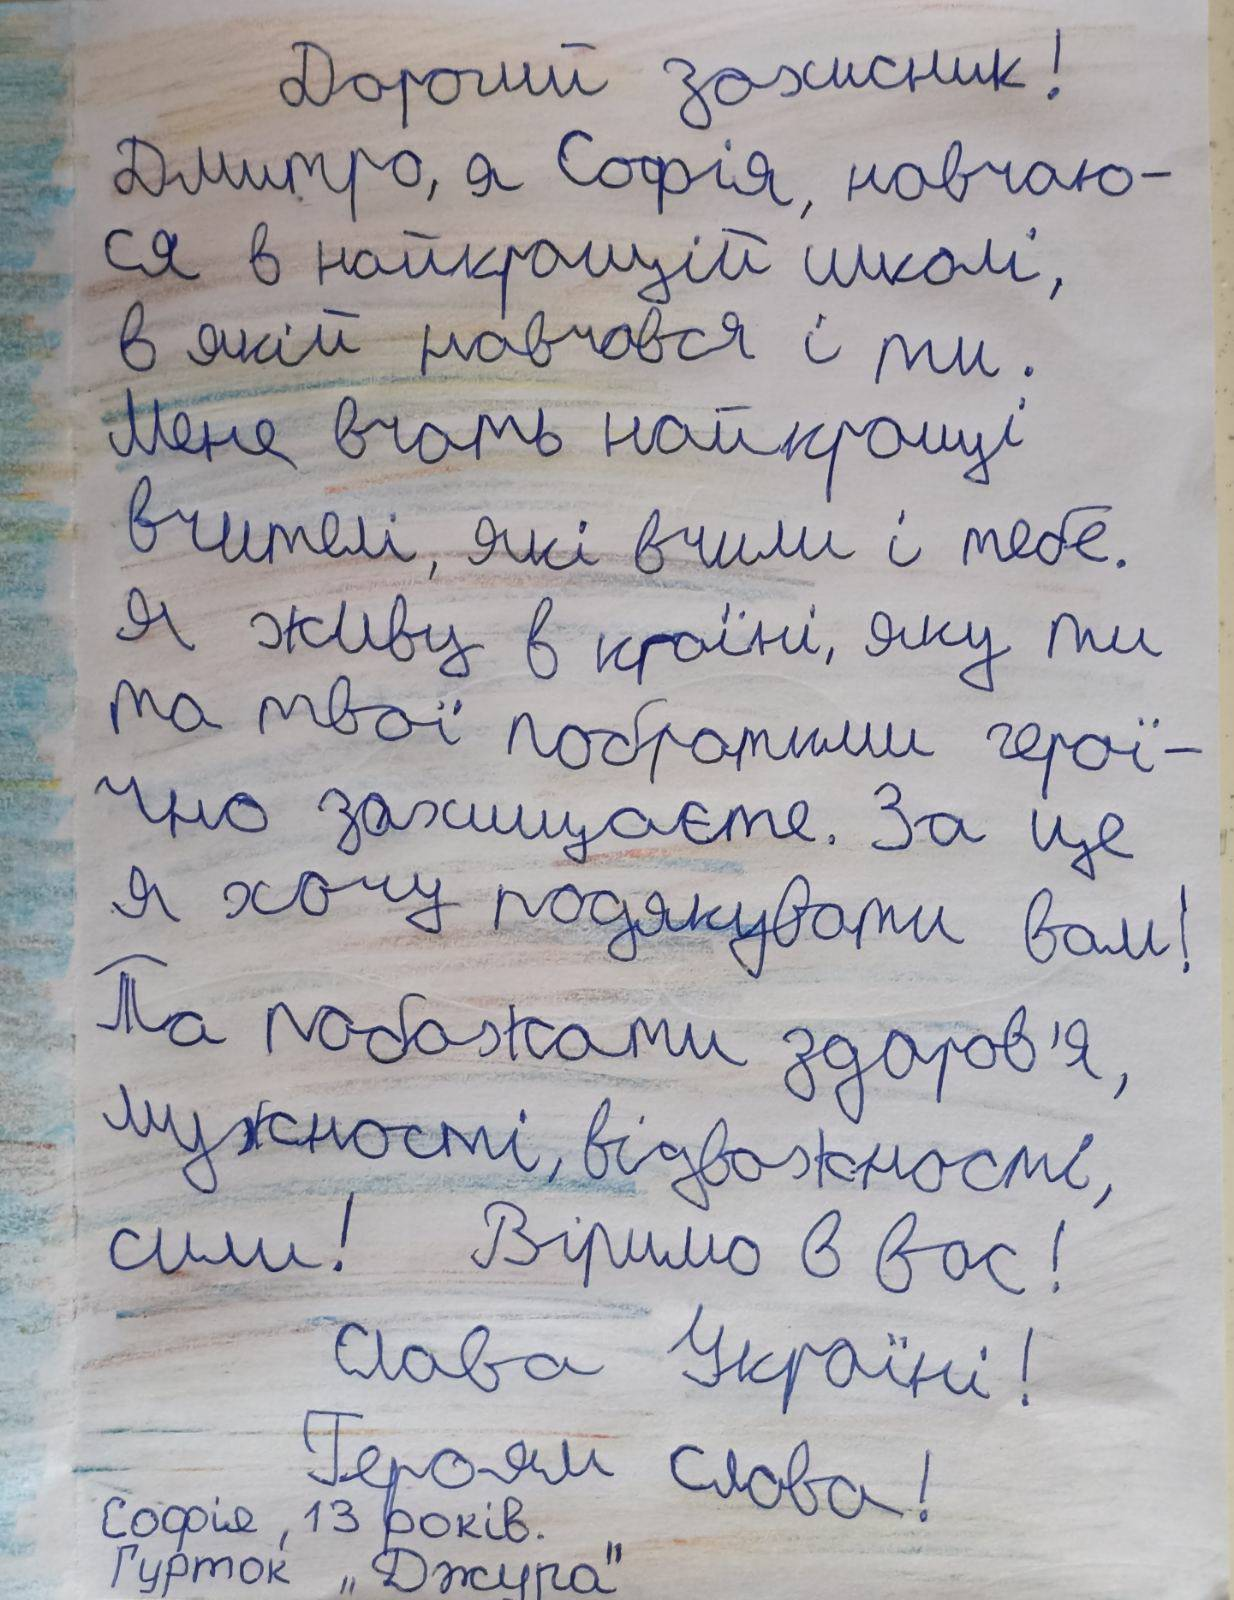 Дорогий захисник!
Дмитро, я Софія, навчаю-
ся в найкращій школі,
в якій навчався і ти.
Мене вчать найкращі
вчителі, які вчили і тебе.
Я живу в країні, яку ти
та твої побратими герої-
чно захищаєте. За це
я хочу подякувати вам!
Та побажати здоров'я,
мужності, відважності,
сили! Віримо в вас!
Слава Україні!
Героям слава!
Софія, 13 років.
Гурток „Джура"